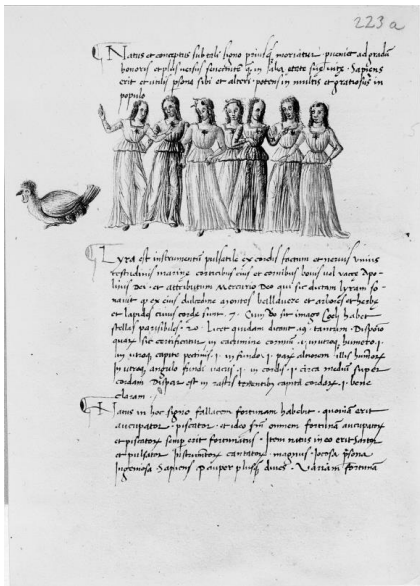 223 a
Natus et conceptus sub tali signo priusq moriatur pueniet ad gradu
honoris et plus netius senectutis q in alia etate sue vite. Sapiens
erit et utilis psona sibi et alteri. potens in multis et gratiosus in
populo
Lyra est instrumentu pulsatile ex cordis factum et nervis unius
testudinis marine corticibus eius et cornibus bovis vel vacce Apo-
linis Dei. et attributum Mercurio Deo qui sic dictam lyram so-
navit q ex eius dulcedine montes ballavere et arbores et herbe
et lapides cuius corde sunt. 7. Cum sit imago Celi habet
stellas passibiles. 20. Licet quidam dicant. 19. tantum. Dispoio
quar sic certificatur in cacumine cornuu. 1. in utroq humero. 1.
in utroq capite pectinis. 1. in fundo. 1. par altiorem illis humor
in utroq angulo fundi vacui. 1. in cordis. 1. circa mediu super
cordam in rastris capita cordar. 1. bene
claram.
Natus in hoc signo fallacem fortunam habebit. quonia erit
aucupator. piscator. et ideo sm omnem fortuna aucupator
et piscator semp erit fortunatus. Item natus in eo erit saltor
et pulsator Instrumentor cantator magnus. Jocosa psona
Ingeniosa. Sapiens pauper plusq dives. Variam fortuna